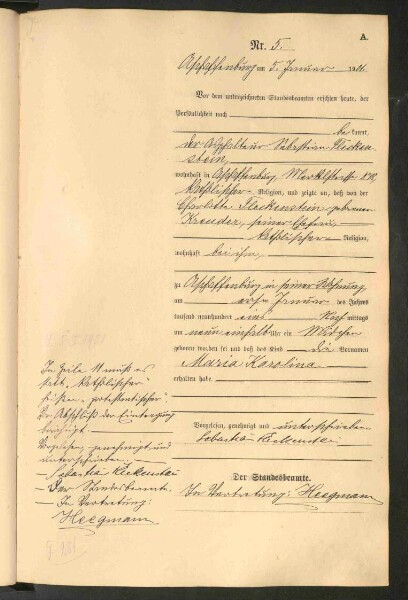 A.
Nr. 5.
Aschaffenburg am 5. Januar 19
Vor dem unterzeichneten Standesbeamten erschien heute, der
Persönlichkeit nach
be kannt,
der Asphalteur Sebastian Flecken-
stein,
wohnhaft in Aschaffenburg,
katholischer Religion, und zeigte an, daß von der
Charlotte Fleckenstein, geborenen
Kreuder, seiner Ehefrau
katholischer Religion,
wohnhaft bei ihm,
zu Aschaffenburg in seiner Wohnung
am Januar des Jahres
tausend neunhundert eins mittags
um neun einhalb Uhr ein Mädchen
geboren worden sei und daß das Kind die Vornamen
Maria Karolina
erhalten habe.
Vorgelesen, genehmigt und unterschrieben
Sebastian Fleckenstein
Der Standesbeamte.
In Vertretung: Heegmann
In Zeile 11 muß es
statt „katholischer"
heißen „protestantischer".
Vor Abschluß der Eintragung
Vorgelesen, genehmigt und
unterschrieben
Sebastian Fleckenstein
Der Standesbeamte.
In Vertretung:
Heegmann